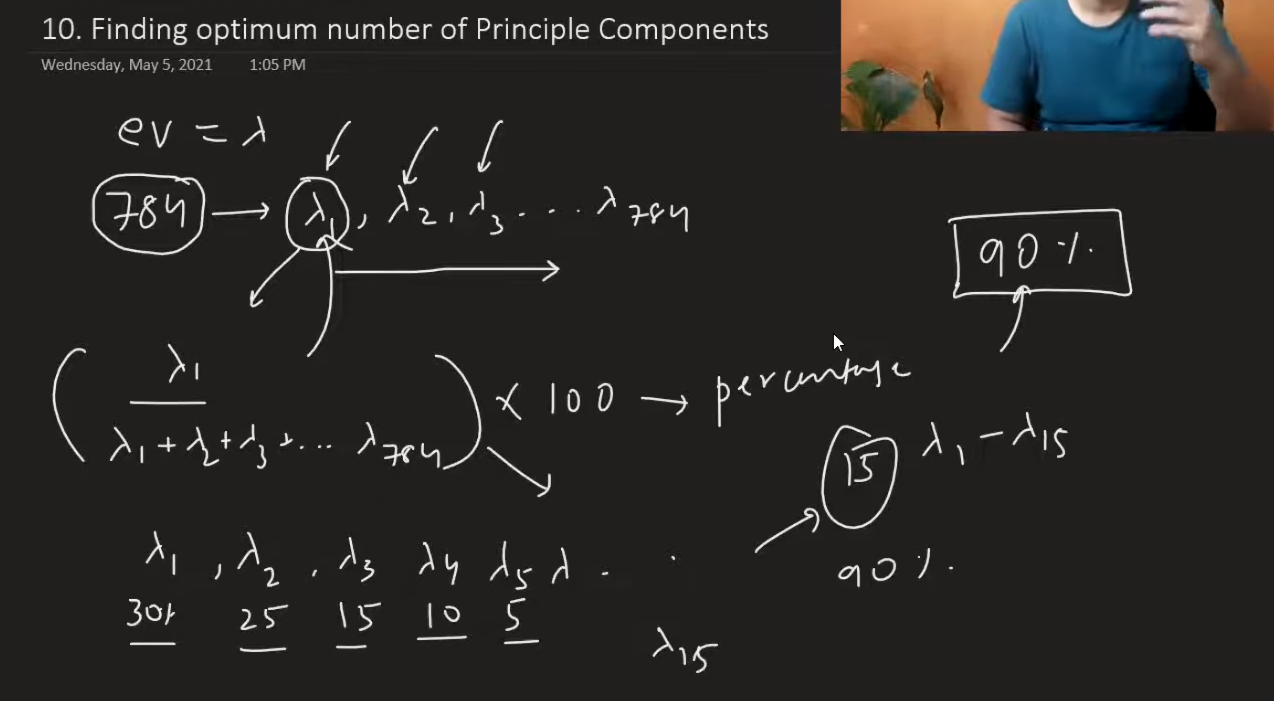 10. Finding optimum number of Principle Components
Wednesday, May 5, 2021 1:05 PM
ev = λ
784 → λ1, λ2, λ3 .... λ784
90 %
( λ1
λ1 + λ2 + λ3 + ... λ784 ) × 100 → percentage
15 λ1 - λ15
λ1, λ2, λ3 λ4 λ5 λ . .
90 %.
30% 25 15 10 5
λ15